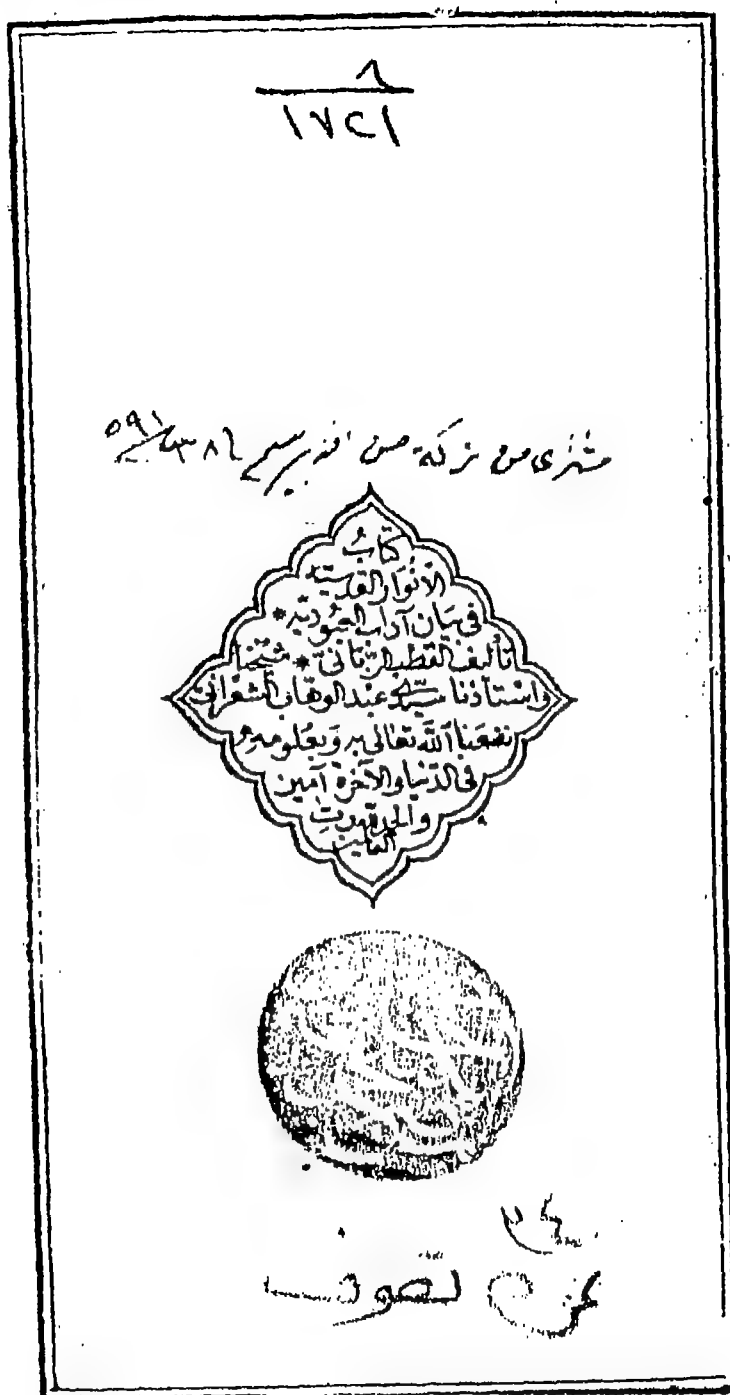 ٨
١٧٢١
مشترى من تركة حسن
كتاب
الانوار القدسية
في بيان آداب العبودية *
تأليف القطب الربّاني * شيخنا
واستاذنا سيدي عبد الوهاب الشعراني
نفعنا الله تعالى به وبعلومه
في الدنيا والآخرة آمين
والحمد لله رب
العالمين
تصوف